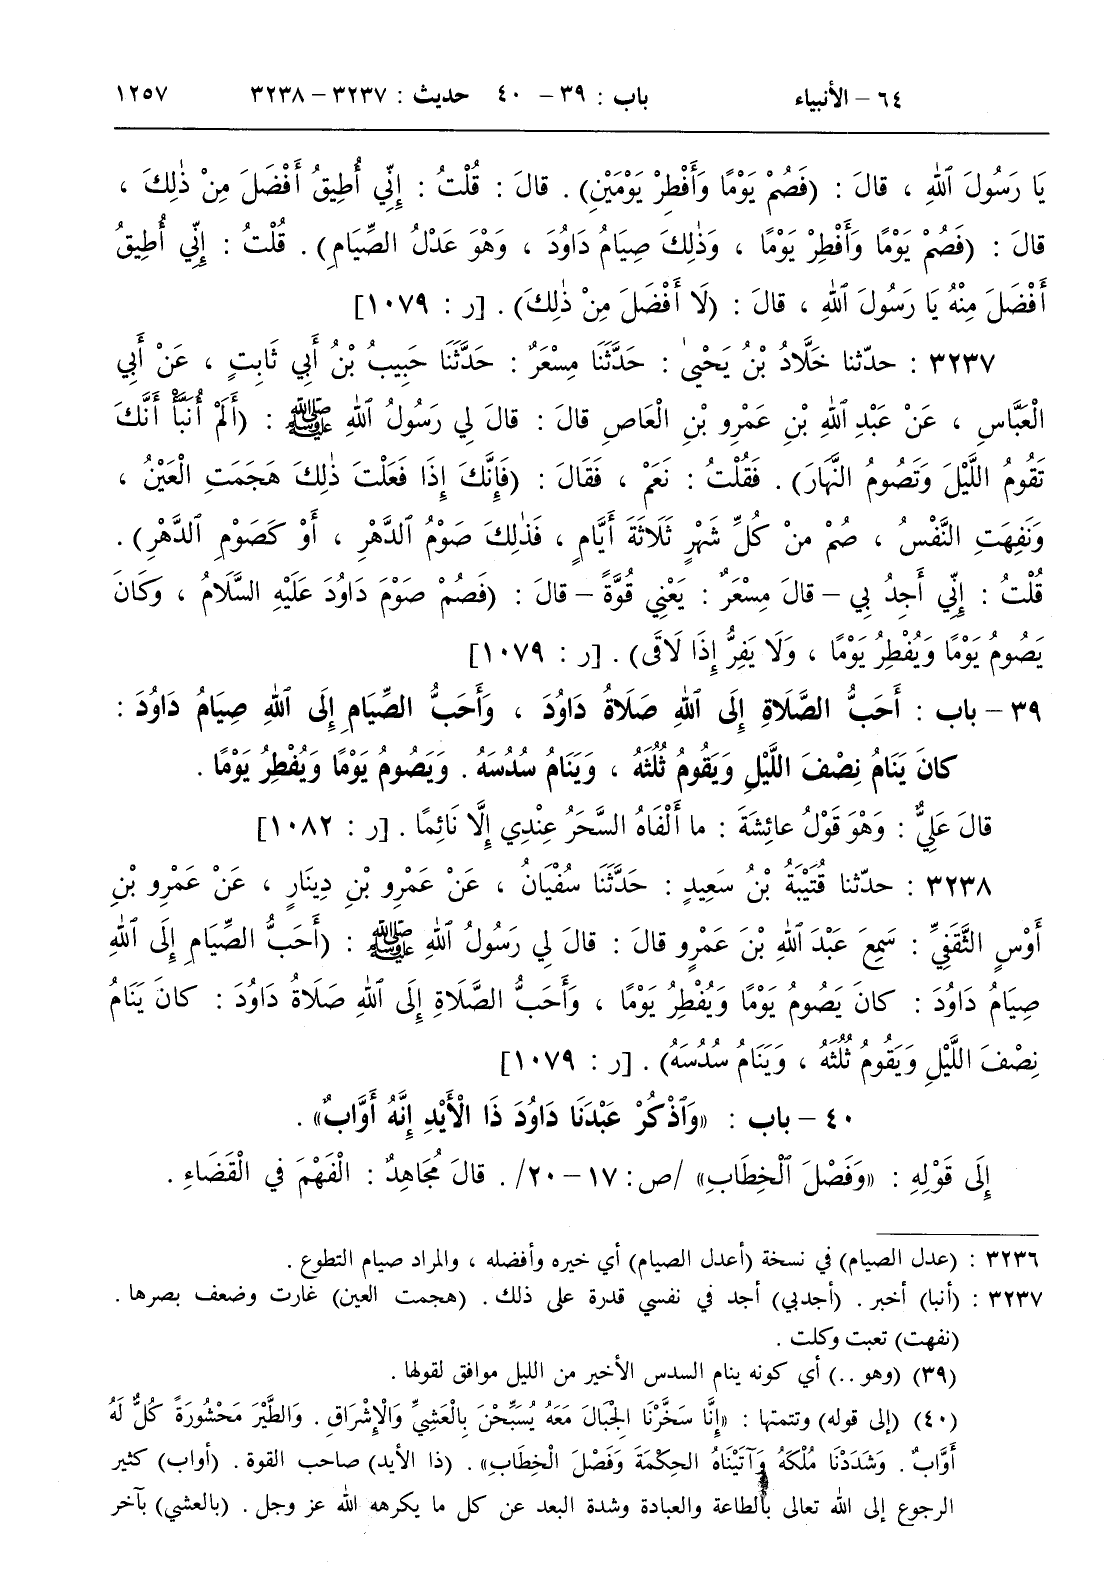 ٦٤ – الأنبياء باب : ٣٩ – ٤٠ حديث : ٣٢٣٧ – ٣٢٣٨ ١٢٥٧
يَا رَسُولَ ٱللهِ ، قالَ : (فَصُمْ يَوْمًا وَأَفْطِرْ يَوْمَيْنِ) . قالَ : قُلْتُ : إِنِّي أُطِيقُ أَفْضَلَ مِنْ ذٰلِكَ ،
قالَ : (فَصُمْ يَوْمًا وَأَفْطِرْ يَوْمًا ، وَذٰلِكَ صِيَامُ دَاوُدَ ، وَهْوَ عَدْلُ الصِّيَامِ) . قُلْتُ : إِنِّي أُطِيقُ
أَفْضَلَ مِنْهُ يَا رَسُولَ ٱللهِ ، قالَ : (لَا أَفْضَلَ مِنْ ذٰلِكَ) . [ر : ١٠٧٩]
٣٢٣٧ : حدّثنا خَلَّادُ بْنُ يَحْيىٰ : حَدَّثَنَا مِسْعَرٌ : حَدَّثَنَا حَبِيبُ بْنُ أَبِي ثَابِتٍ ، عَنْ أَبِي
الْعَبَّاسِ ، عَنْ عَبْدِ ٱللهِ بْنِ عَمْرِو بْنِ الْعَاصِ قالَ : قالَ لِي رَسُولُ ٱللهِ ﷺ : (أَلَمْ أُنَبَّأْ أَنَّكَ
تَقُومُ اللَّيْلَ وَتَصُومُ النَّهَارَ) . فَقُلْتُ : نَعَمْ ، فَقَالَ : (فَإِنَّكَ إِذَا فَعَلْتَ ذٰلِكَ هَجَمَتِ الْعَيْنُ ،
وَنَفِهَتِ النَّفْسُ ، صُمْ مِنْ كُلِّ شَهْرٍ ثَلَاثَةَ أَيَّامٍ ، فَذٰلِكَ صَوْمُ ٱلدَّهْرِ ، أَوْ كَصَوْمِ ٱلدَّهْرِ) .
قُلْتُ : إِنِّي أَجِدُ بِي – قالَ مِسْعَرٌ : يَعْنِي قُوَّةً – قالَ : (فَصُمْ صَوْمَ دَاوُدَ عَلَيْهِ السَّلَامُ ، وَكَانَ
يَصُومُ يَوْمًا وَيُفْطِرُ يَوْمًا ، وَلَا يَفِرُّ إِذَا لَاقَى) . [ر : ١٠٧٩]
٣٩ – باب : أَحَبُّ الصَّلَاةِ إِلَى ٱللهِ صَلَاةُ دَاوُدَ ، وَأَحَبُّ الصِّيَامِ إِلَى ٱللهِ صِيَامُ دَاوُدَ :
كانَ يَنَامُ نِصْفَ اللَّيْلِ وَيَقُومُ ثُلُثَهُ ، وَيَنَامُ سُدُسَهُ . وَيَصُومُ يَوْمًا وَيُفْطِرُ يَوْمًا .
قالَ عَلِيٌّ : وَهْوَ قَوْلُ عائِشَةَ : ما أَلْفَاهُ السَّحَرُ عِنْدِي إِلَّا نَائِمًا . [ر : ١٠٨٢]
٣٢٣٨ : حدّثنا قُتَيْبَةُ بْنُ سَعِيدٍ : حَدَّثَنَا سُفْيَانُ ، عَنْ عَمْرِو بْنِ دِينَارٍ ، عَنْ عَمْرِو بْنِ
أَوْسٍ الثَّقَفِيِّ : سَمِعَ عَبْدَ ٱللهِ بْنَ عَمْرٍو قالَ : قالَ لِي رَسُولُ ٱللهِ ﷺ : (أَحَبُّ الصِّيَامِ إِلَى ٱللهِ
صِيَامُ دَاوُدَ : كانَ يَصُومُ يَوْمًا وَيُفْطِرُ يَوْمًا ، وَأَحَبُّ الصَّلَاةِ إِلَى ٱللهِ صَلَاةُ دَاوُدَ : كانَ يَنَامُ
نِصْفَ اللَّيْلِ وَيَقُومُ ثُلُثَهُ ، وَيَنَامُ سُدُسَهُ) . [ر : ١٠٧٩]
٤٠ – باب : «وَٱذْكُرْ عَبْدَنَا دَاوُدَ ذَا الْأَيْدِ إِنَّهُ أَوَّابٌ» .
إِلَى قَوْلِهِ : «وَفَصْلَ ٱلْخِطَابِ» /ص : ١٧ – ٢٠/ . قالَ مُجَاهِدٌ : الْفَهْمَ في الْقَضَاءِ .
٣٢٣٦ : (عدل الصيام) في نسخة (أعدل الصيام) أي خيره وأفضله ، والمراد صيام التطوع .
٣٢٣٧ : (أنبا) أخبر . (أجدبي) أجد في نفسي قدرة على ذلك . (هجمت العين) غارت وضعف بصرها .
(نفهت) تعبت وكلت .
(٣٩) (وهو ..) أي كونه ينام السدس الأخير من الليل موافق لقولها .
(٤٠) (إلى قوله) وتتمتها : «إِنَّا سَخَّرْنَا الجِبَالَ مَعَهُ يُسَبِّحْنَ بِالْعَشِيِّ وَالْإِشْرَاقِ . وَالطَّيْرَ مَحْشُورَةً كُلٌّ لَهُ
أَوَّابٌ . وَشَدَدْنَا مُلْكَهُ وَآتَيْنَاهُ الحِكْمَةَ وَفَصْلَ الْخِطَابِ» . (ذا الأيد) صاحب القوة . (أواب) كثير
الرجوع إلى الله تعالى بالطاعة والعبادة وشدة البعد عن كل ما يكرهه الله عز وجل . (بالعشي) بآخر